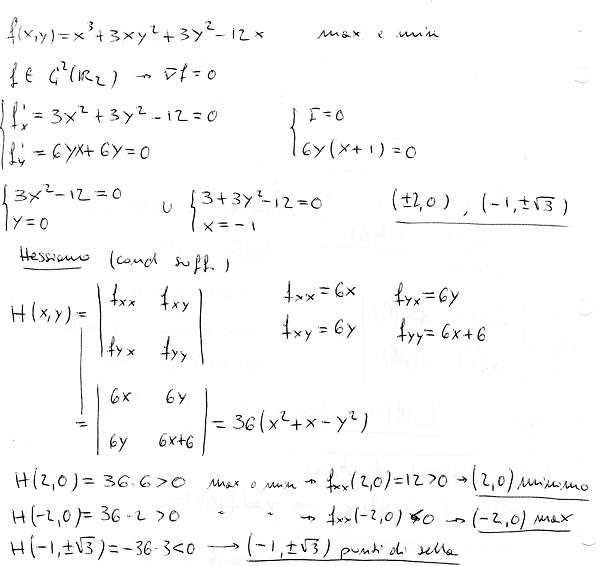 f(x,y)=x³+3xy²+3y²-12x max e min
f ∈ C²(ℝ₂) → ∇f=0
{ f'x = 3x²+3y²-12=0 { I=0
{ f'y = 6yx+6y=0 { 6y(x+1)=0
{ 3x²-12=0 ∪ { 3+3y²-12=0 (±2,0), (-1,±√3)
{ y=0 { x=-1
Hessiano (cond suff.)
H(x,y) = | fxx fxy | fxx=6x fyx=6y
| fyx fyy | fxy=6y fyy=6x+6
= | 6x 6y | = 36(x²+x-y²)
| 6y 6x+6 |
H(2,0)=36·6>0 max o min → fxx(2,0)=12>0 → (2,0) minimo
H(-2,0)=36·2>0 " " → fxx(-2,0)<0 → (-2,0) max
H(-1,±√3)=-36·3<0 → (-1,±√3) punti di sella